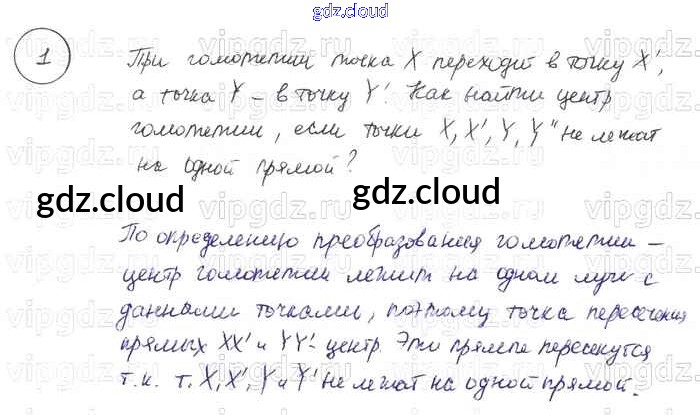 gdz.cloud
1
При гомотетии точка X переходит в точку X',
а точка Y – в точку Y'. Как найти центр
гомотетии, если точки X, X', Y, Y" не лежат
на одной прямой?
gdz.cloud gdz.cloud
По определению преобразования гомотетии –
центр гомотетии лежит на одном луче с
данными точками, поэтому точка пересечения
прямых XX' и YY'- центр. Эти прямые пересекутся
т.к. т. X, X', Y и Y' не лежат на одной прямой.